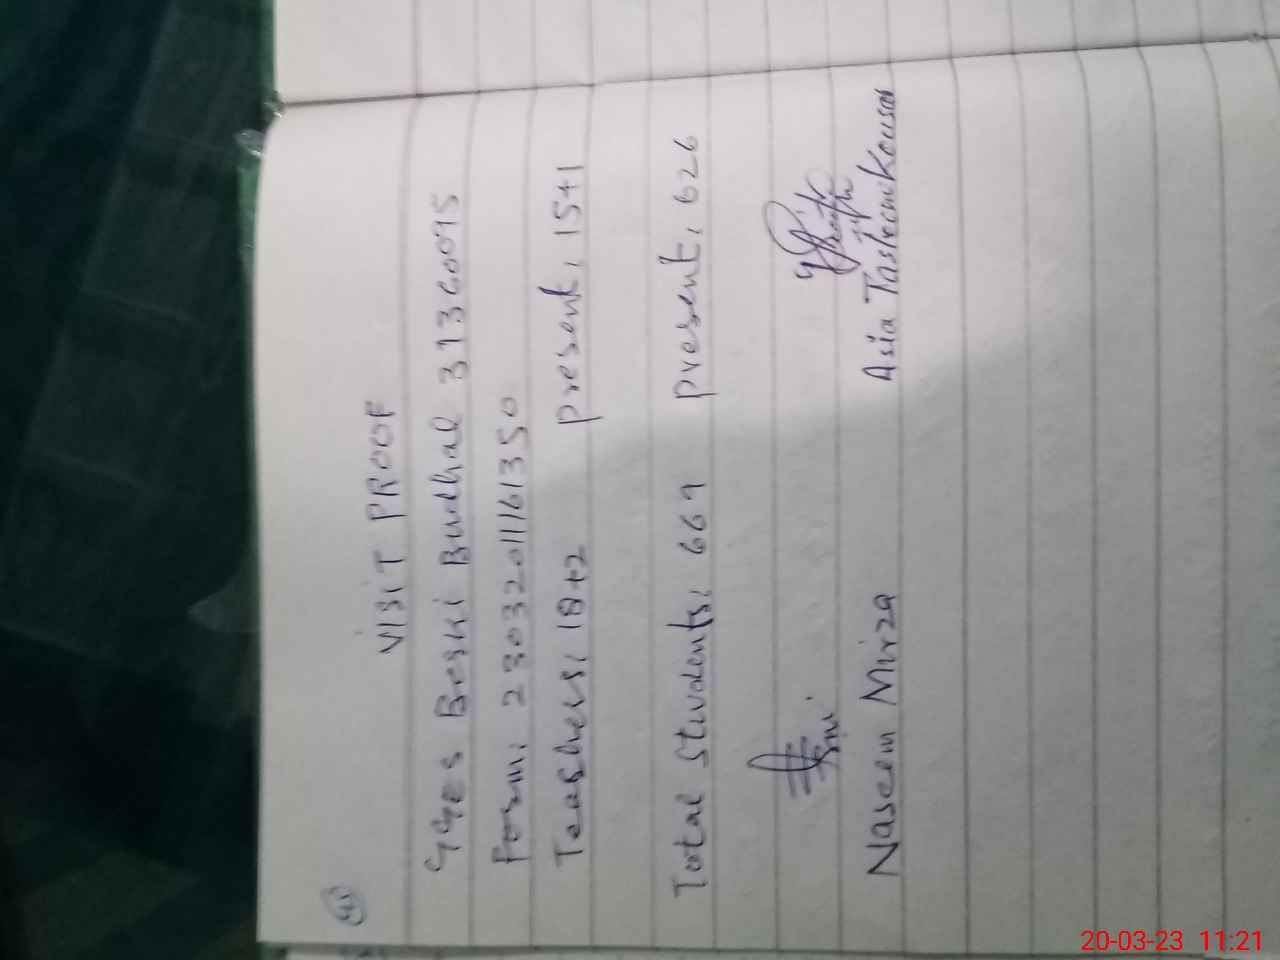 45
VISIT PROOF
GGES Beski Budhal 37360095
Form: 23032011161350
Teashers: 18+2 present: 15+1
Total Students: 669 present: 626
Naseem Mirza Asia Tasleem Kousar
20-03-23 11:21